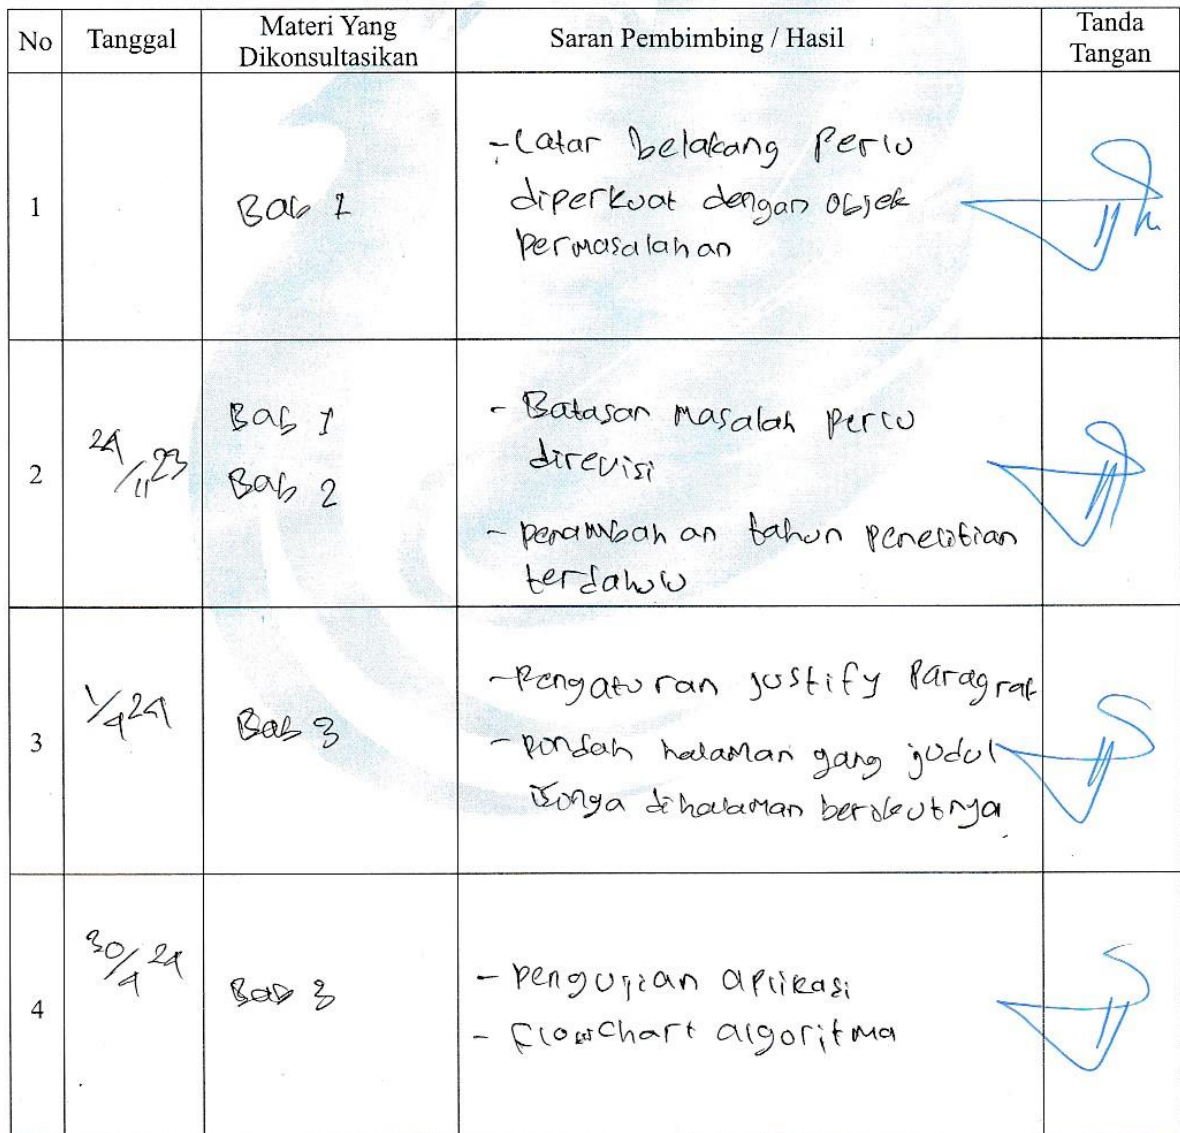 No Tanggal Materi Yang Dikonsultasikan Saran Pembimbing / Hasil Tanda Tangan
1
Bab 1
- Latar belakang Perlu
diperkuat dengan objek
permasalahan
2
24/11 23
Bab 1
Bab 2
- Batasan masalah perlu
direvisi
- penambahan tahun penelitian
terdahulu
3
1/4 24
Bab 3
- Pengaturan justify Paragraf
- pindah halaman yang judul
isinya dihalaman berikutnya
4
30/4 24
Bab 3
- pengujian aplikasi
- flowchart algoritma